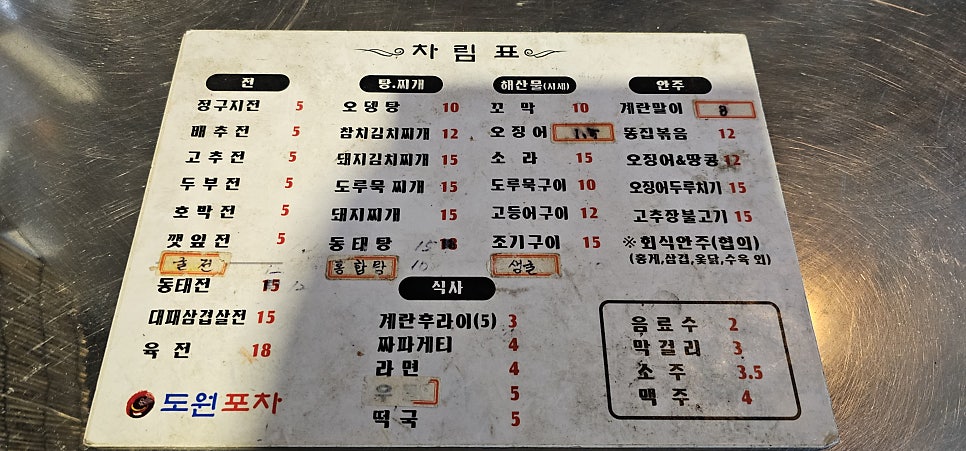 차림표
전
정구지전 5
배추전 5
고추전 5
두부전 5
호박전 5
깻잎전 5
굴전
동태전 15
대패삼겹살전 15
육전 18
탕.찌개
오뎅탕 10
참치김치찌개 12
돼지김치찌개 15
도루묵찌개 15
돼지찌개 15
동태탕 15
홍합탕 10
해산물(시세)
꼬막 10
오징어
소라 15
도루묵구이 10
고등어구이 12
조기구이 15
생굴
안주
계란말이 8
똥집볶음 12
오징어&땅콩 12
오징어두루치기 15
고추장불고기 15
※회식안주(협의)
(홍게,삼겹,옻닭,수육 외)
식사
계란후라이(5) 3
짜파게티 4
라면 4
5
떡국 5
음료수 2
막걸리 3
소주 3.5
맥주 4
도원포차